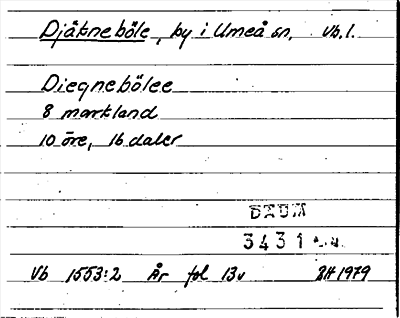 Djäkneböle, by i Umeå sn, Vb.l.
Diegnebölee
8 markland
10 öre, 16 daler
DAUM
3431
Vb 1553:2 År fol 13v BH 1979